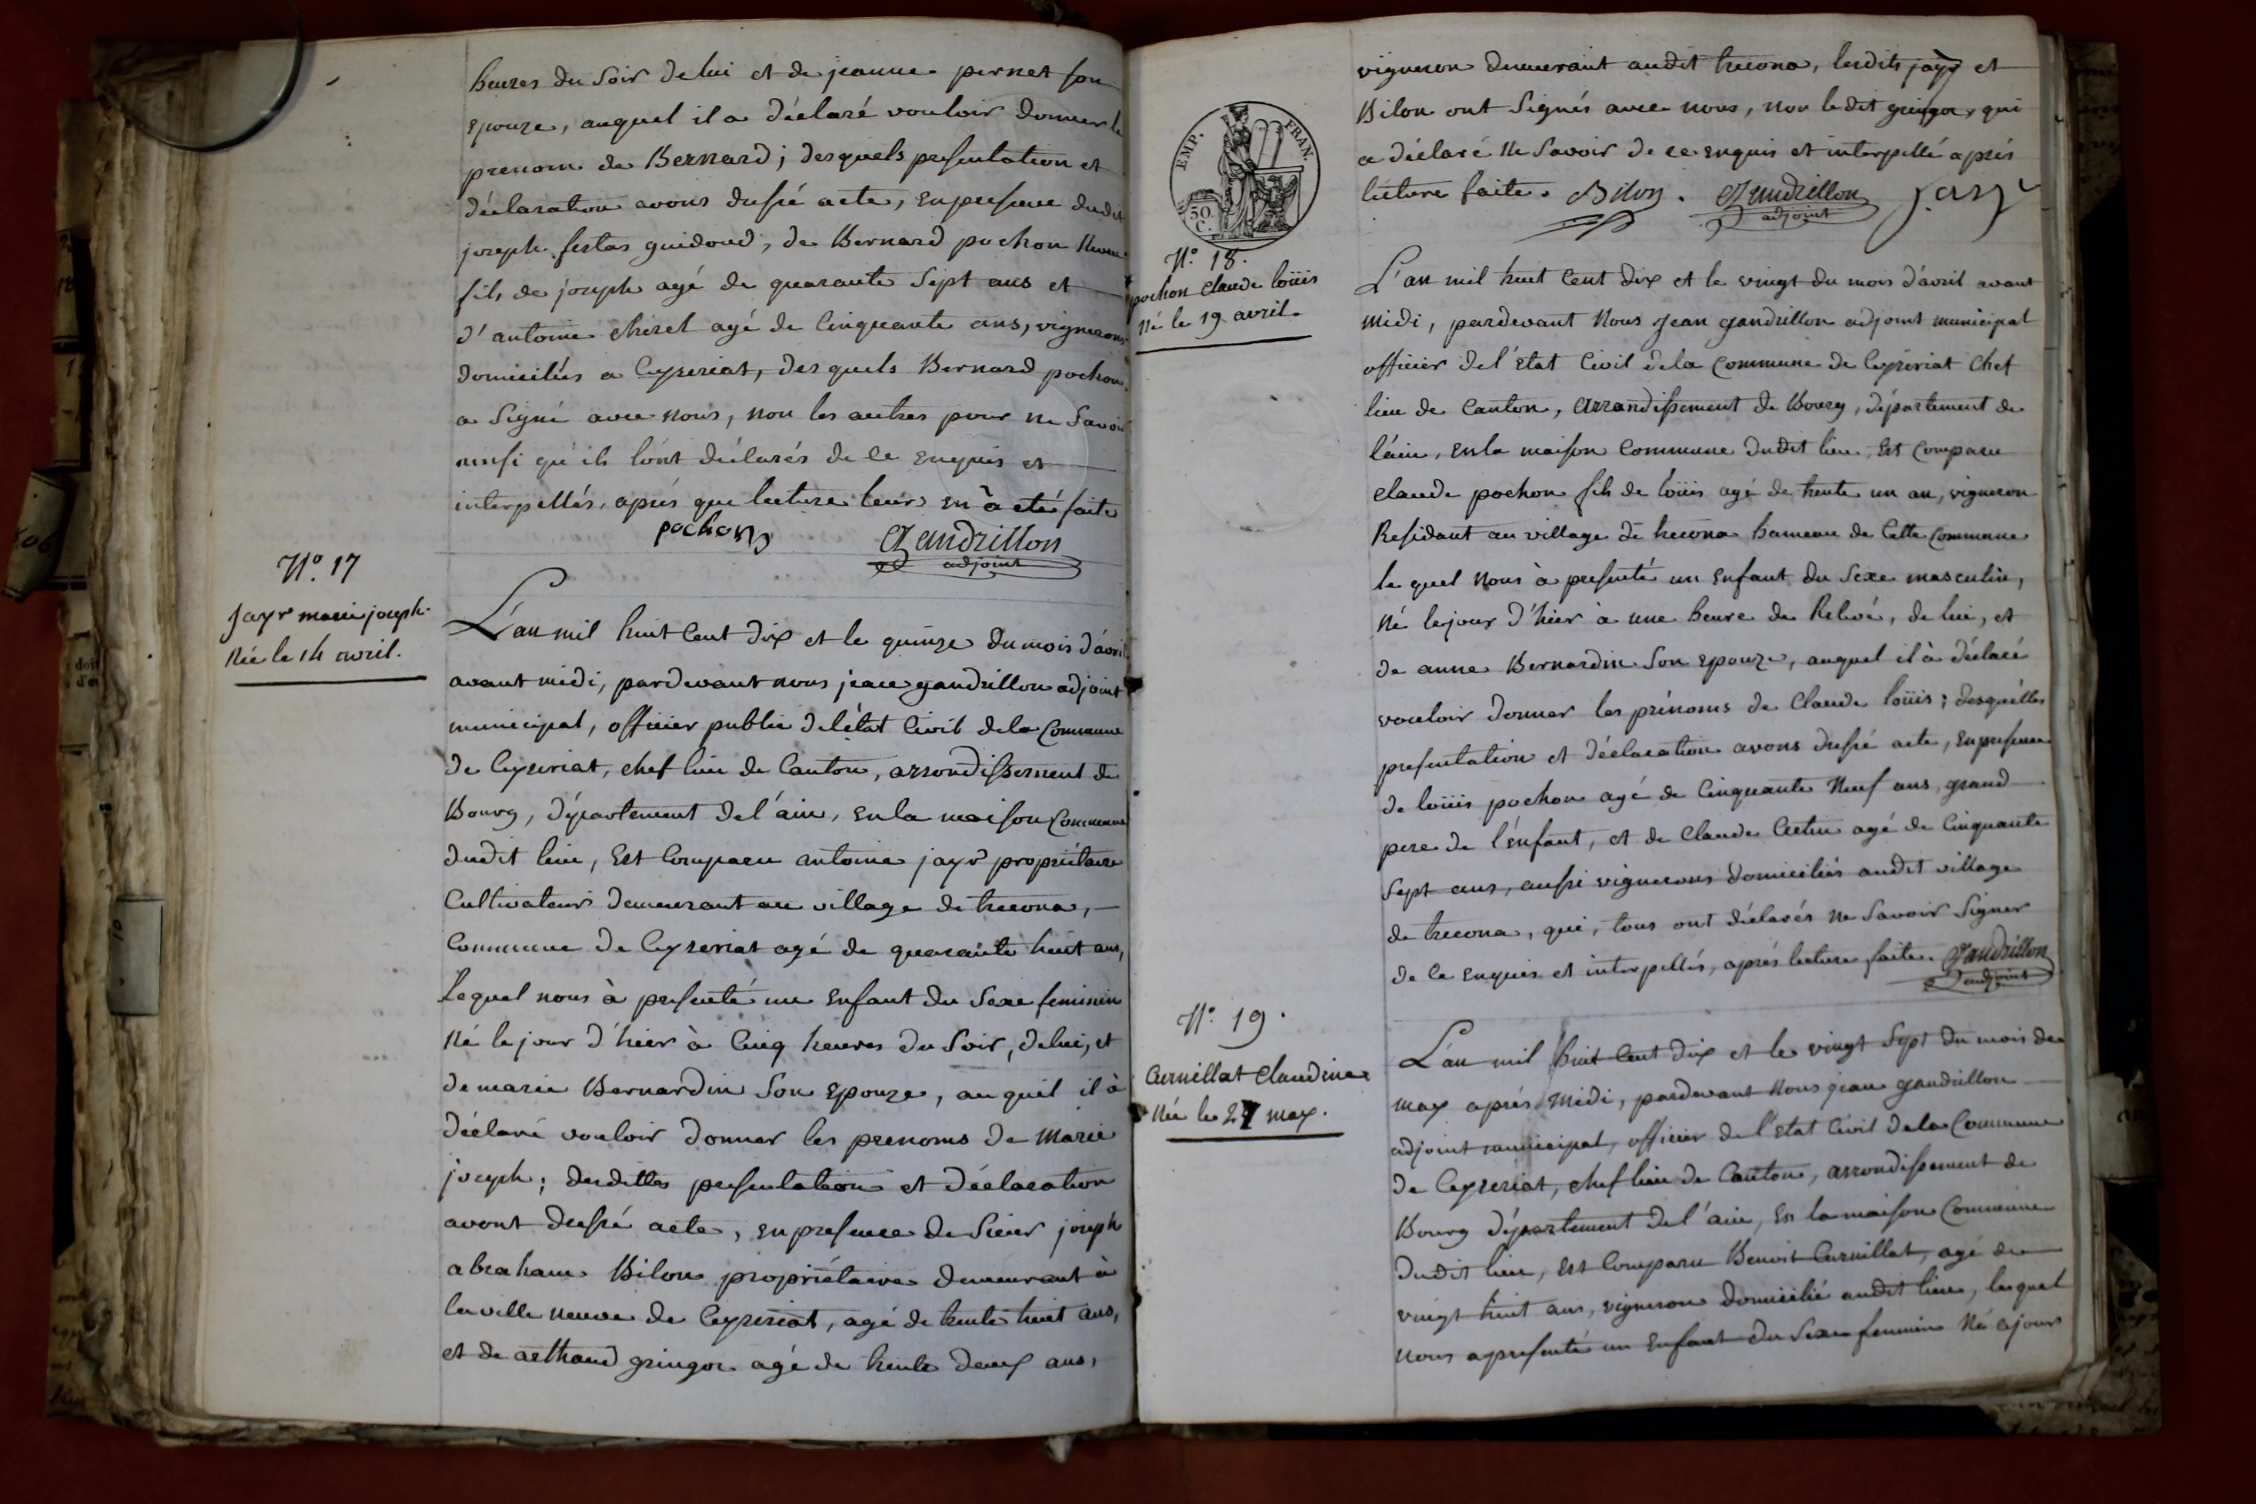 heures du soir de lui et de jeanne pernet son
epouze, auquel il a déclaré vouloir donner le
prenom de Bernard; desquels presentation et
déclaration avons dressé acte, en presence dudit
joseph festas guidoud, de Bernard pochon
fils de joseph agé de quarante sept ans et
d'antoine chirel agé de Cinquante ans, vignerons
domiciliés a Ceyzeriat, des quels Bernard pochon
a signé avec nous, non les autres pour ne savoir
ainsi qu'ils l'ont déclarés de ce enquis et
interpellés, aprés que lecture leur en à eté faite
pochon
Gandrillon
adjoint
N.o 17
Jayr marie joseph.
Née le 14 avril.
L'an mil huit Cent dix et le quinze du mois d'avril
avant midi, pardevant nous jean gandrillon adjoint
municipal, officier public de l'état Civil de la Commune
de Ceyzeriat, chef lieu de Canton, arrondissement de
Bourg, département de l'ain, en la maison Commune
dudit lieu, Est Comparu antoine jayr propriétaire
Cultivateur demeurant au village de trecona,
Commune de Ceyzeriat agé de quarante huit ans,
Lequel nous à presenté un Enfant du Sexe feminin
Né le jour d'hier à Cinq heures du soir, de lui, et
de marie Bernardin Son Epouze, au quel il à
déclaré vouloir donner les prenoms de Marie
joseph; desdittes presentation et déclaration
avont dressé acte, en presence de Sieur joseph
abraham Bilon propriétaire demeurant à
la ville neuve de Ceyzeriat, agé de trente huit ans,
et de arthaud gringoz agé de trente deux ans,
vigneron demeurant audit trecona, lesdits jayr et
Bilon ont Signés avec nous, non le dit gringoz, qui
a déclaré Ne Savoir de ce enquis et interpellé aprés
lecture faite. Bilon. Gandrillon Jayr
adjoint
EMP. FRAN.
50 C.
N.o 18.
pochon Claude loüis
Né le 19 avril.
L'an mil huit Cent dix et le vingt du mois d'avril avant
Midi, pardevant Nous Jean gandrillon adjoint municipal
officier de l'Etat Civil de la Commune de Ceyzériat Chef
lieu de Canton, Arrondissement de Bourg, département de
l'ain, en la maison Commune dudit lieu, Est Comparu
Claude pochon fils de loüis agé de trente un an, vigneron
Residant au village de trecona hameau de Cette Commune
le quel Nous à presenté un Enfant du Sexe masculin,
Né le jour d'hier à une heure de Relevé, de lui, et
de anne Bernardin Son Epouze, auquel il à déclaré
vouloir donner les prénoms de Claude loüis; desquelles
presentation et déclaration avons dressé acte, En presence
de loüis pochon agé de Cinquante Neuf ans, grand
pere de l'Enfant, et de Claude agé de Cinquante
Sept ans, aussi vignerons domiciliés audit village
de trecona, qui, tous ont déclarés Ne Savoir Signer
de ce Enquis et interpellés, aprés lecture faite. Gandrillon
adjoint
N.o 19.
Curnillat Claudine
Née le 27 may.
L'an mil huit Cent dix et le vingt Sept du mois de
may aprés Midi, pardevant Nous jean gandrillon
adjoint municipal, officier de l'Etat Civil de la Commune
de Ceyzeriat, chef lieu de Canton, arrondissement de
Bourg département de l'ain, En la maison Commune
dudit lieu, Est Comparu Benoit Curnillat, agé de
vingt huit ans, vigneron domicilié audit lieu, lequel
Nous a presenté un Enfant du Sexe feminin Né cejour